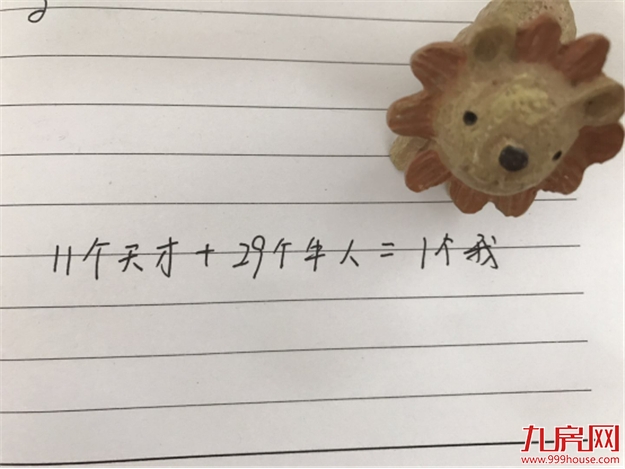 11个天才+29个牛人=1个我
九房网
www.999house.com